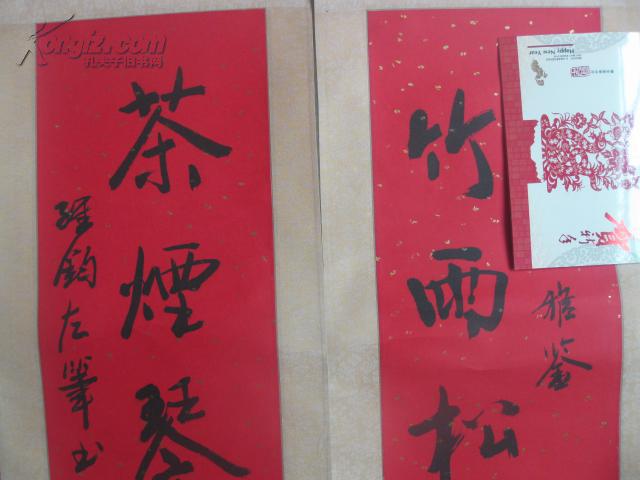 竹雨松
雅鉴
茶煙琴
左筆书
Happy New Year
賀新年
Kongfz.com
孔夫子旧书网